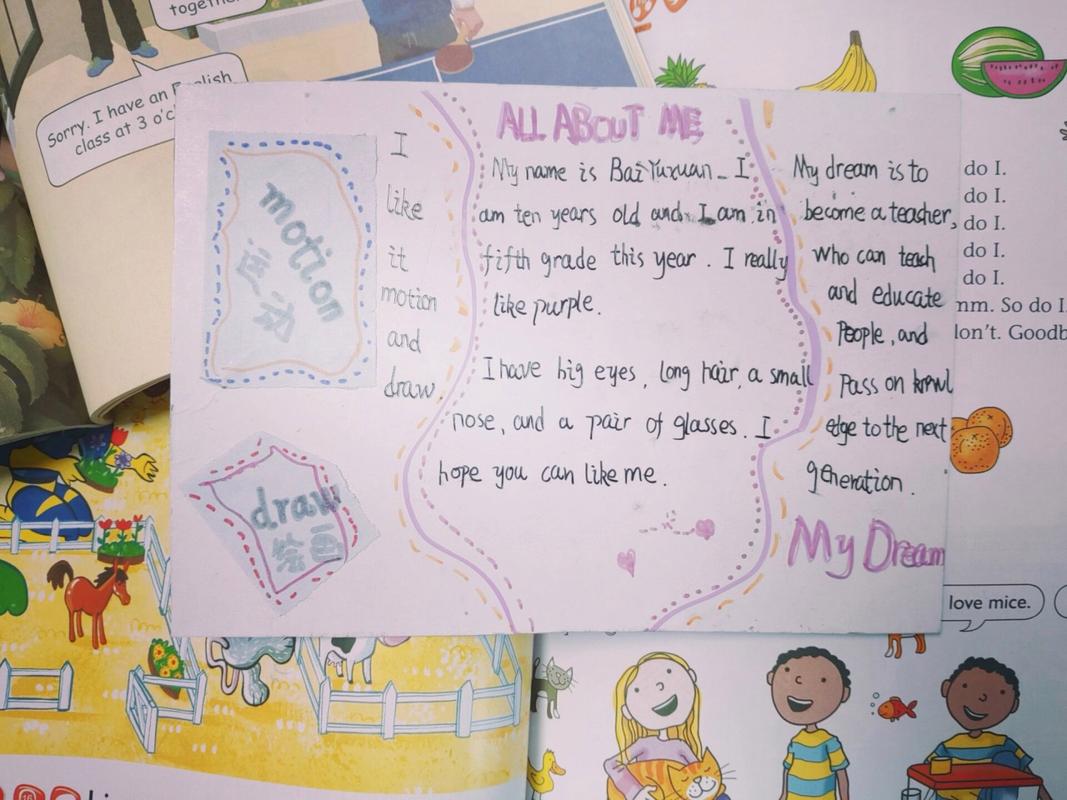 together
Sorry. I have an English
class at 3 o'c
motion
运动
draw
绘画
I
like
it
motion
and
draw
ALL ABOUT ME
My name is Bai Yuxuan. I
am ten years old and I am in
fifth grade this year. I really
like purple.
I have big eyes, long hair, a small
nose, and a pair of glasses. I
hope you can like me.
My dream is to
become a teacher,
who can teach
and educate
People, and
Pass on knowl
edge to the next
generation.
My Dream
do I.
do I.
do I.
do I.
do I.
mm. So do I
don't. Goodb
love mice.